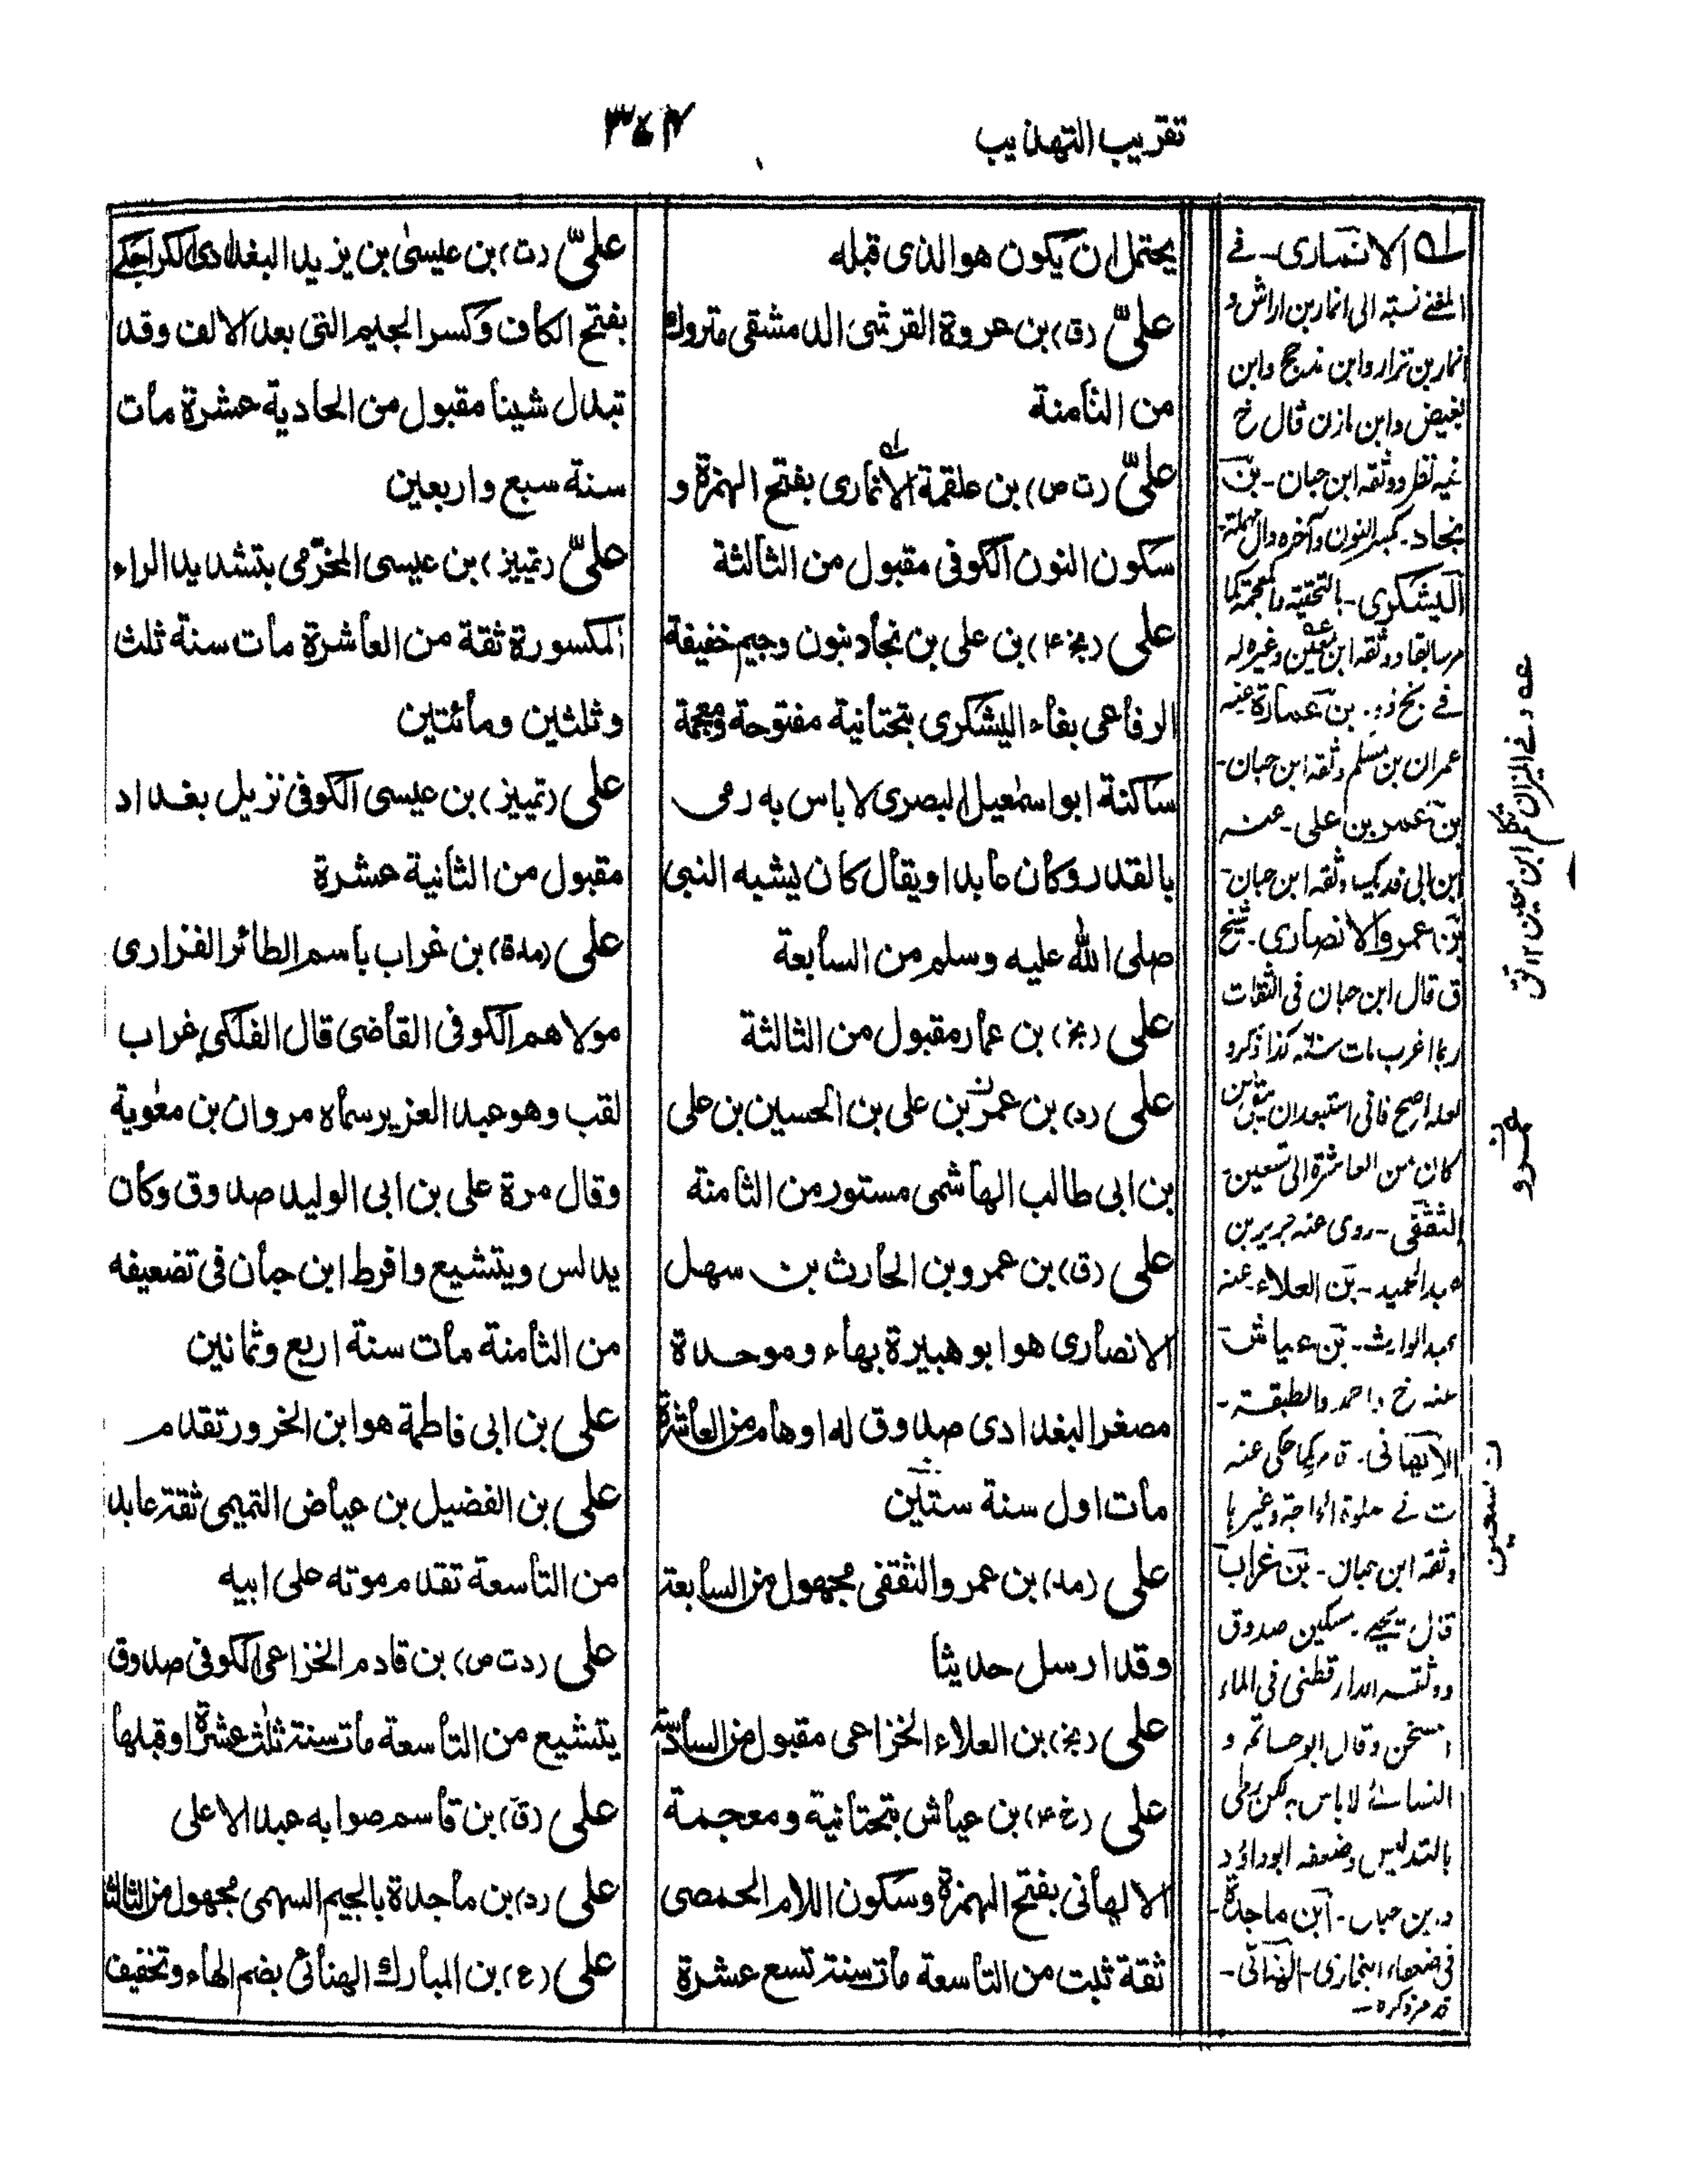 تقريب التهذيب
٣٧٤
يحتمل ان يكون هو الذى قبله
علىّ (ق) بن عروة القرشى الدمشقى متروك
من الثامنة
علىّ (ت ص) بن علقمة الانمارى بفتح الهمزة و
سكون النون الكوفى مقبول من الثالثة
على (بخ ۴) بن على بن نجاد بنون وجيم خفيفة
الرفاعى بفاء اليشكرى بتحتانية مفتوحة ومعجمة
ساكنة ابو اسمٰعيل البصرى لا باس به رمى
بالقدر وكان عابدا ويقال كان يشبه النبى
صلى الله عليه وسلم من السابعة
على (بخ) بن عمار مقبول من الثالثة
على (د) بن عمر بن على بن الحسين بن على
بن ابى طالب الهاشمى مستور من الثامنة
على (ق) بن عمرو بن الحارث بن سهل
الانصارى هو ابو هبيرة بهاء وموحدة
مصغر البغدادى صدوق له اوهام من العاشرة
مات اول سنة ستين
على (مد) بن عمرو الثقفى مجهول من السابعة
وقد ارسل حديثا
على (بخ) بن العلاء الخزاعى مقبول من السادسة
على (خ ۴) بن عياش بتحتانية ومعجمة
الالهانى بفتح الهمزة وسكون اللام الحمصى
ثقة ثبت من التاسعة مات سنة تسع عشرة
علىّ (ت) بن عيسىٰ بن يزيد البغدادى الكراجكى
بفتح الكاف وكسر الجيم التى بعد الالف وقد
تبدل شينا مقبول من الحادية عشرة مات
سنة سبع واربعين
علىّ (تمييز) بن عيسى المخرّمى بتشديد الراء
المكسورة ثقة من العاشرة مات سنة ثلث
وثلثين ومائتين
على (تمييز) بن عيسى الكوفى نزيل بغداد
مقبول من الثانية عشرة
على (مدة) بن غراب باسم الطائر الفزارى
مولاهم الكوفى القاضى قال الفلكى غراب
لقب وهو عبد العزيز سماه مروان بن معٰوية
وقال مرة على بن ابى الوليد صدوق وكان
يدلس ويتشيع وافرط ابن حبان فى تضعيفه
من الثامنة مات سنة اربع وثمانين
على بن ابى فاطمة هو ابن الحزور تقدم
على بن الفضيل بن عياض التميمى ثقة عابد
من التاسعة تقدم موته على ابيه
على (د ت ص) بن قادم الخزاعى الكوفى صدوق
يتشيع من التاسعة مات سنة ثلٰث عشرة او قبلها
على (ق) بن قاسم صوابه عبد الاعلى
على (د) بن ماجدة بالجيم السهمى مجهول من الثالثة
على (ع) بن المبارك الهنائى بضم الهاء وتخفيف
له الانمارى - فے
المغنے نسبة الى انمار بن اراش و
انمار بن نزار وابن مذحج وابن
بغيض وابن مازن قال خ
فيه نظر ووثقه ابن حبان - بن
نجاد - بكسر النون وآخره دال مهملة -
اليشكرى - بالتحتية والمعجمة كما
مر سابقا ووثقه ابن معين وغيره له
بن عمارة عنه
عمران بن مسلم وثقه ابن حبان -
بن عمر بن على - عنه
ابن ابى فديك وثقه ابن حبان -
بن عمرو الانصارى - شيخ
ق قال ابن حبان فى الثقات
ربما اغرب مات سنة كذا ذكره
كان من العاشرة الى تسعين
الثقفى - روى عنه جرير بن
عبد الحميد - بن العلاء - عنه
عبد الوارث - بن عياش -
عنه خ واحمد والطبقة -
وثقه ابن حبان - بن غراب
قال يحيے مسكين صدوق
ووثقه الدارقطنى فى الماء
المسخن وقال ابو حاتم و
النسائے لا باس به لكن رمى
بالتدليس وضعفه ابو داؤد
و ابن حبان - ابن ماجدة -
فى ضعفاء البخارى - الهنائى -
قد مر ذكره -
عه وفے الميزان تكلم ابن معين ١٢
ن عمرو
ن سبعين